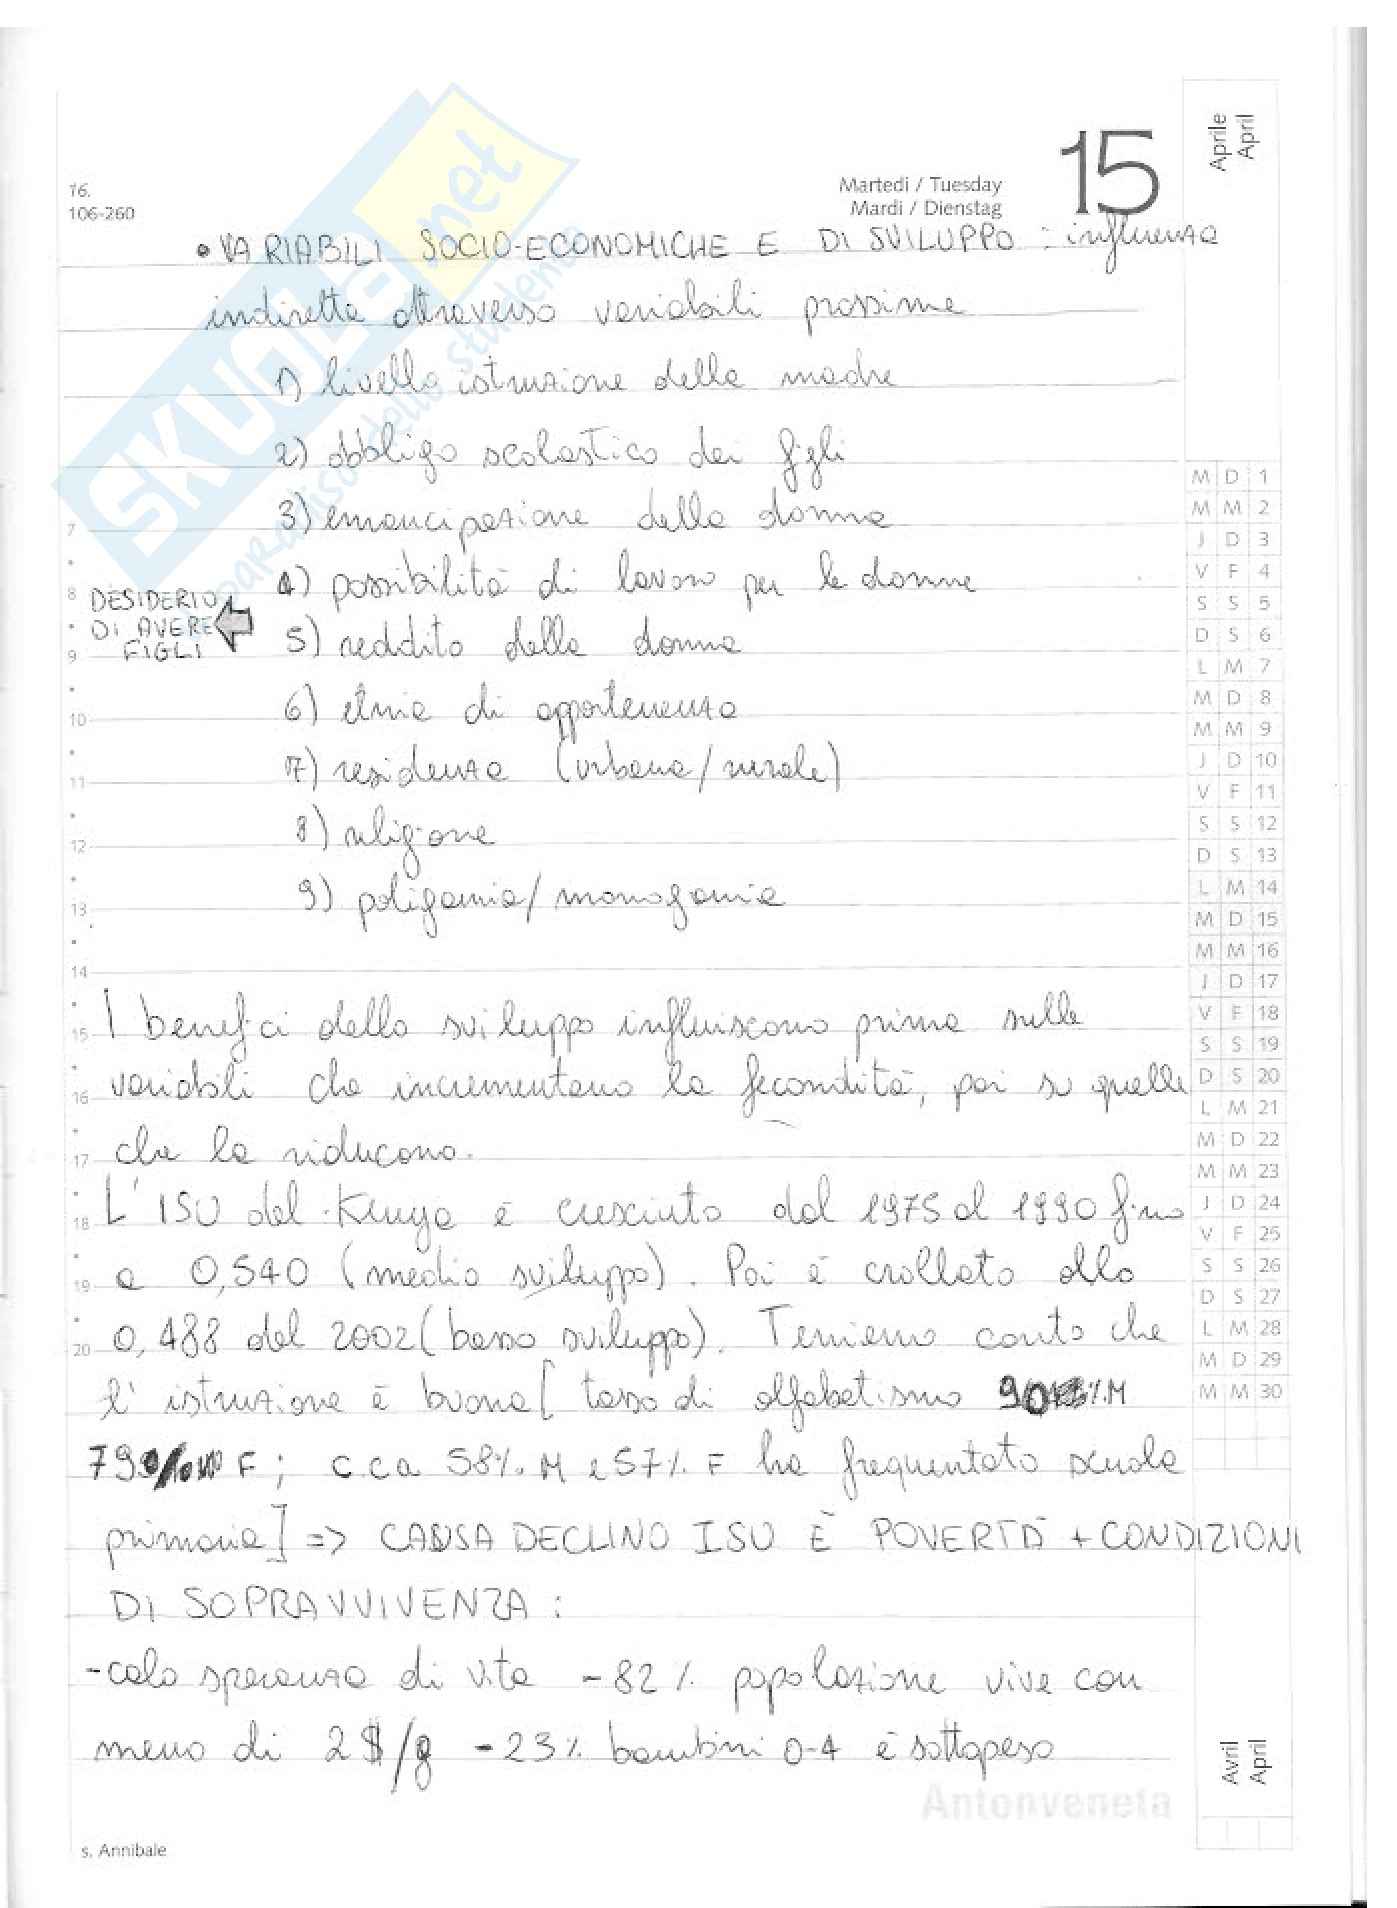 Aprile
April
15
Martedì / Tuesday
Mardi / Dienstag
16.
106-260
SKUOLA.net
il paradiso dello studente
• VARIABILI SOCIO-ECONOMICHE E DI SVILUPPO : influenza
indiretta attraverso variabili prossime
1) livello istruzione della madre
2) obbligo scolastico dei figli
3) emancipazione della donna
4) possibilità di lavoro per le donne
DESIDERIO
DI AVERE
FIGLI
5) reddito della donna
6) etnia di appartenenza
7) residenza (urbana/rurale)
8) religione
9) poligamia/monogamia
I benefici dello sviluppo influiscono prima sulle
variabili che incrementano la fecondità, poi su quelle
che la riducono.
L'ISU del Kenya è cresciuto dal 1975 al 1990 fino
a 0,540 (medio sviluppo). Poi è crollato allo
0,488 del 2002 (basso sviluppo). Teniamo conto che
l'istruzione è buona [tasso di alfabetismo 90%M
79% F; c.ca 58% M e 57% F ha frequentato scuola
primaria] => CAUSA DECLINO ISU È POVERTÀ + CONDIZIONI
DI SOPRAVVIVENZA :
-calo speranza di vita -82% popolazione vive con
meno di 2$/g -23% bambini 0-4 è sottopeso
7
8
9
10
11
12
13
14
15
16
17
18
19
20
M D 1
M M 2
J D 3
V F 4
S S 5
D S 6
L M 7
M D 8
M M 9
J D 10
V F 11
S S 12
D S 13
L M 14
M D 15
M M 16
J D 17
V F 18
S S 19
D S 20
L M 21
M D 22
M M 23
J D 24
V F 25
S S 26
D S 27
L M 28
M D 29
M M 30
Avril
April
Antonveneta
s. Annibale